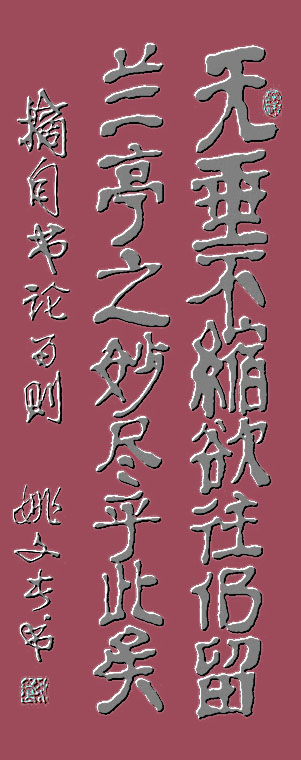 无垂不缩欲往仍留
兰亭之妙尽乎此矣
摘自书论百则
姚文奎书